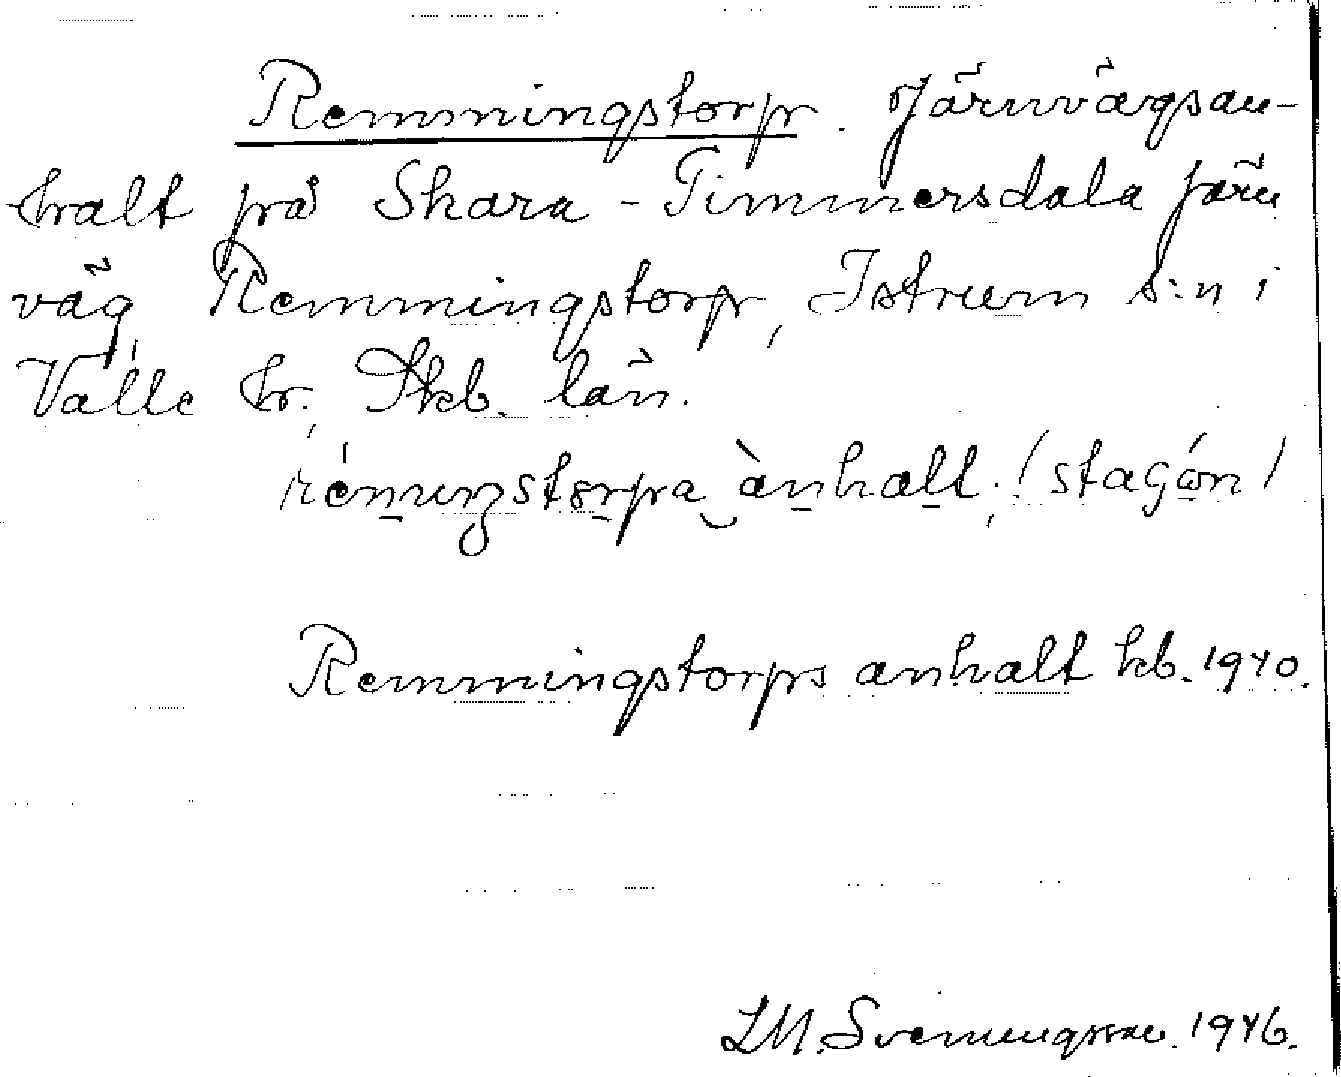 Remmingstorp. Järnvägsan-
halt på Skara-Timmersdala järn
väg, Remmingstorp, Istrum s:n i
Valle hr., Skb. län.
anhalt, (stagón)
Remmingstorps anhalt kb. 1940.
LM. Svenungsson. 1946.